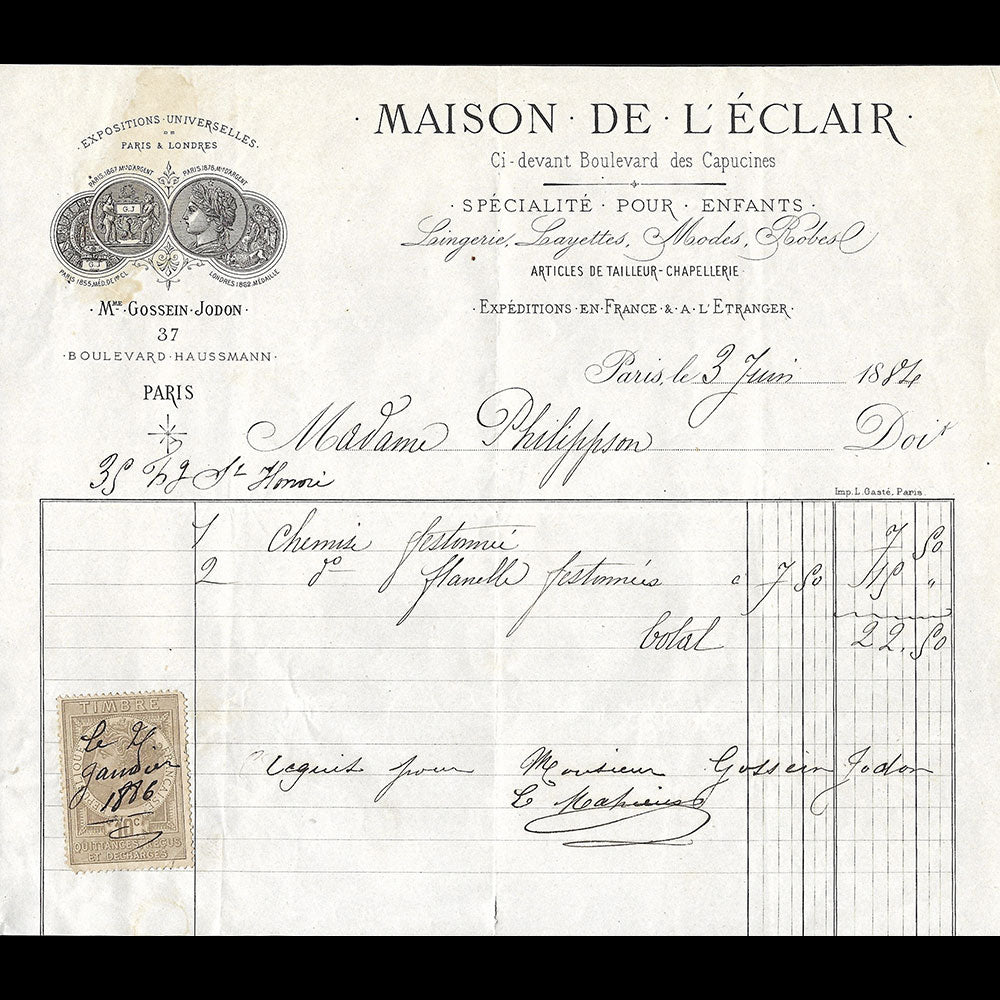 EXPOSITIONS · UNIVERSELLES
DE
PARIS & LONDRES
PARIS 1867 Mon D'ARGENT
PARIS 1878 Mon D'ARGENT
G.J
G.J
PARIS 1855, MÉD. DE 1re CL.
LONDRES 1862, MÉDAILLE
· MME · GOSSEIN · JODON ·
37
· BOULEVARD · HAUSSMANN ·
PARIS
· MAISON · DE · L'ÉCLAIR ·
Ci-devant Boulevard des Capucines
· SPÉCIALITÉ · POUR · ENFANTS ·
Lingerie, Layettes, Modes, Robes
ARTICLES DE TAILLEUR - CHAPELLERIE ·
· EXPÉDITIONS · EN · FRANCE · & · A · L'ETRANGER ·
Paris, le 3 Juin 1884
Madame Philippson Doit
35 Fg St Honoré
Imp. L. Gasté, Paris.
1 Chemise festonnée 7 50
2 do flanelle festonnées c 7 50 15 "
Total 22.50
TIMBRE
le
Janvier
1886
10c
QUITTANCES, REÇUS
ET DÉCHARGES
Acquit pour Monsieur Gossein Jodon